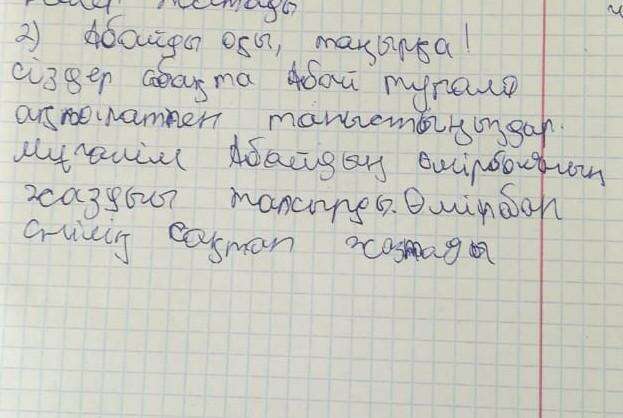 2) Абайды оқы, таңырқа!
сіздер сабақта Абай туралы
ақпаратпен таныстыңыздар.
Мұғалім Абайдың өмірбаянын
жаздыы тапсырды. Өмірбаян
стилің сақтап жазады